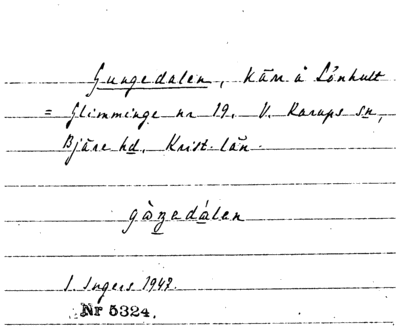 Gungedalen, kärr å Lönhult
= Glimminge nr 19. V. Karups sn,
Bjäre hd. Krist. län.
gàŋedálen
I. Ingers 1947.
Nr 5324.